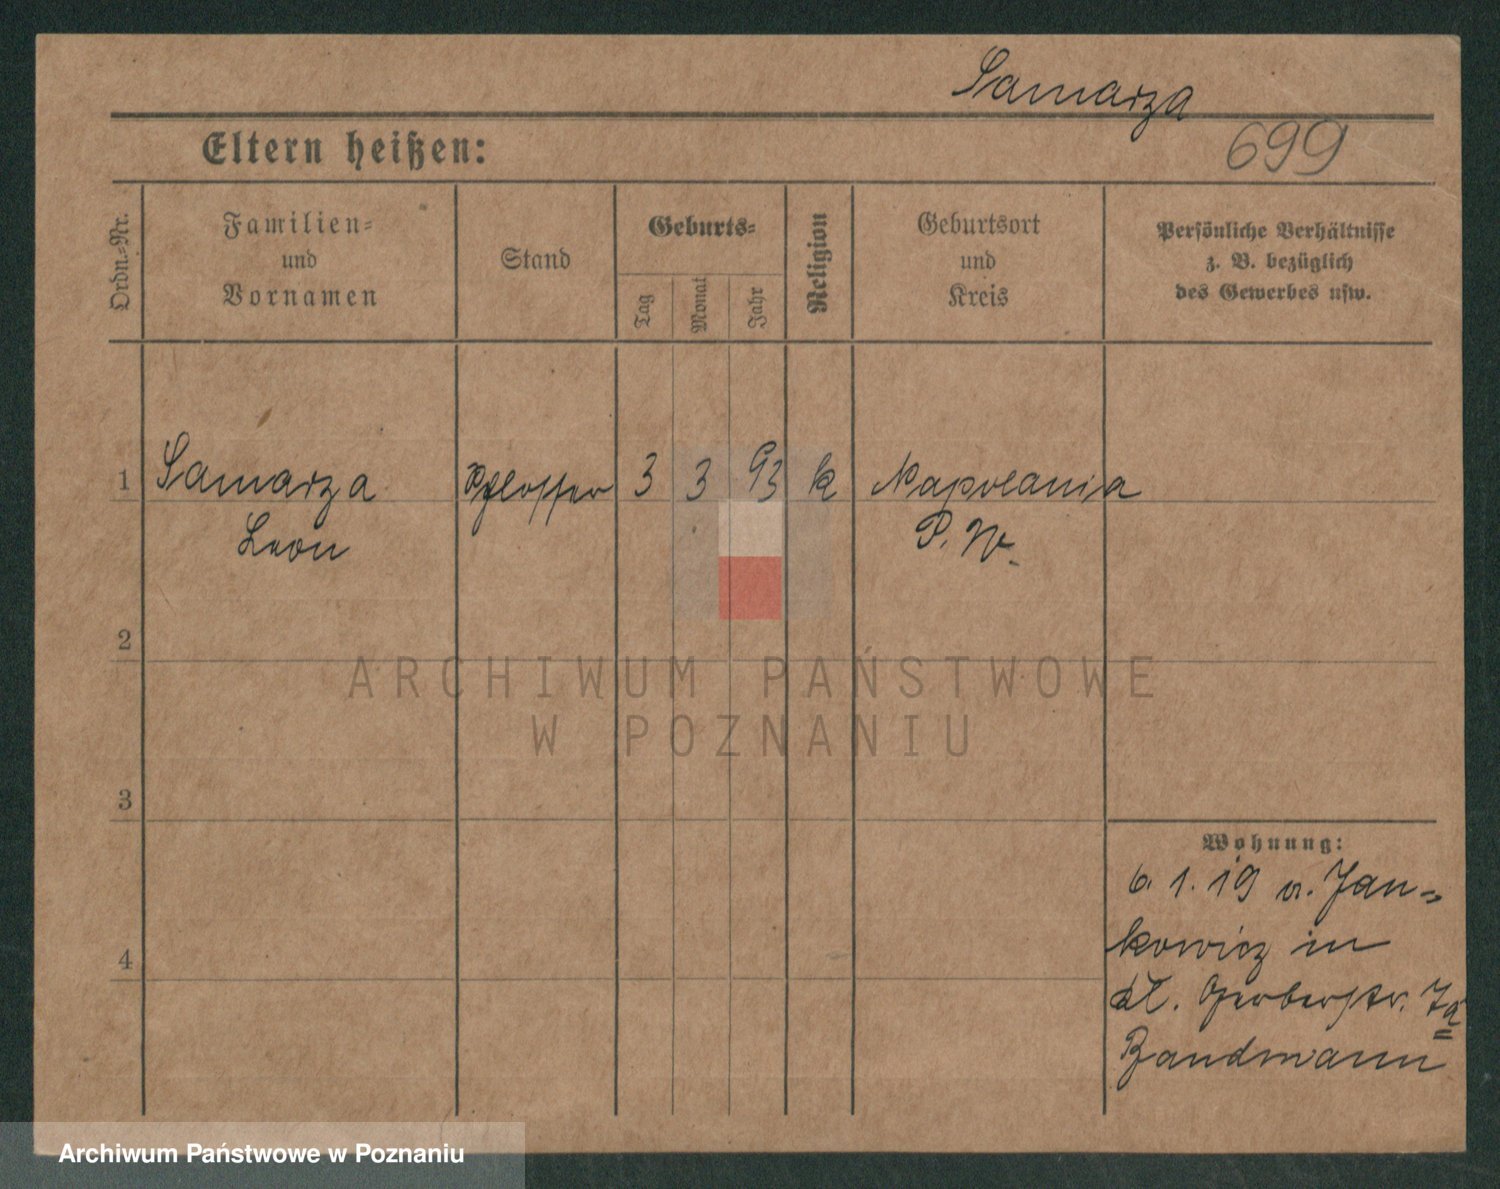 Samarza
699
Eltern heißen:
Ordn.-Nr.
Familien-
und
Vornamen
Stand
Geburts-
Tag
Monat
Jahr
Religion
Geburtsort
und
Kreis
Persönliche Verhältnisse
z. B. bezüglich
des Gewerbes usw.
1
Samarza
Leon
3
3
93
k
Napoleania
P. W.
2
ARCHIWUM PAŃSTWOWE
W POZNANIU
3
Wohnung:
6. 1. 19 v. Jan-
kowicz in
kl. Gerberstr. 7a
Bandmann
4
Archiwum Państwowe w Poznaniu